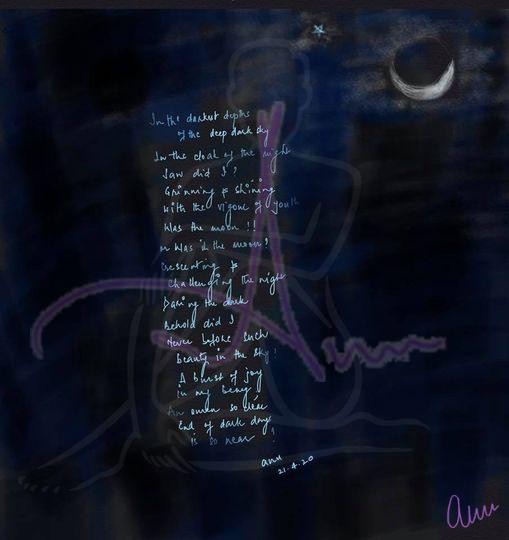 In the darkest depths
of the deep dark sky
In the cloak of the night
Saw did I,
Grinning & shining
With the vigour of youth
Was the moon !!
or Was it the moon ?
Crescenting &
Challenging the night
Daring the dark
Behold did I
Never before such
beauty in the sky !
A burst of joy
in my being
An omen so clear
End of dark days
is so near !
anu
21.4.20
Anu
anu